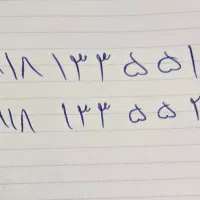 ۱۱۸ ۱۳۳ ۵۵۱
۱۱۸ ۱۳۳ ۵۵۲